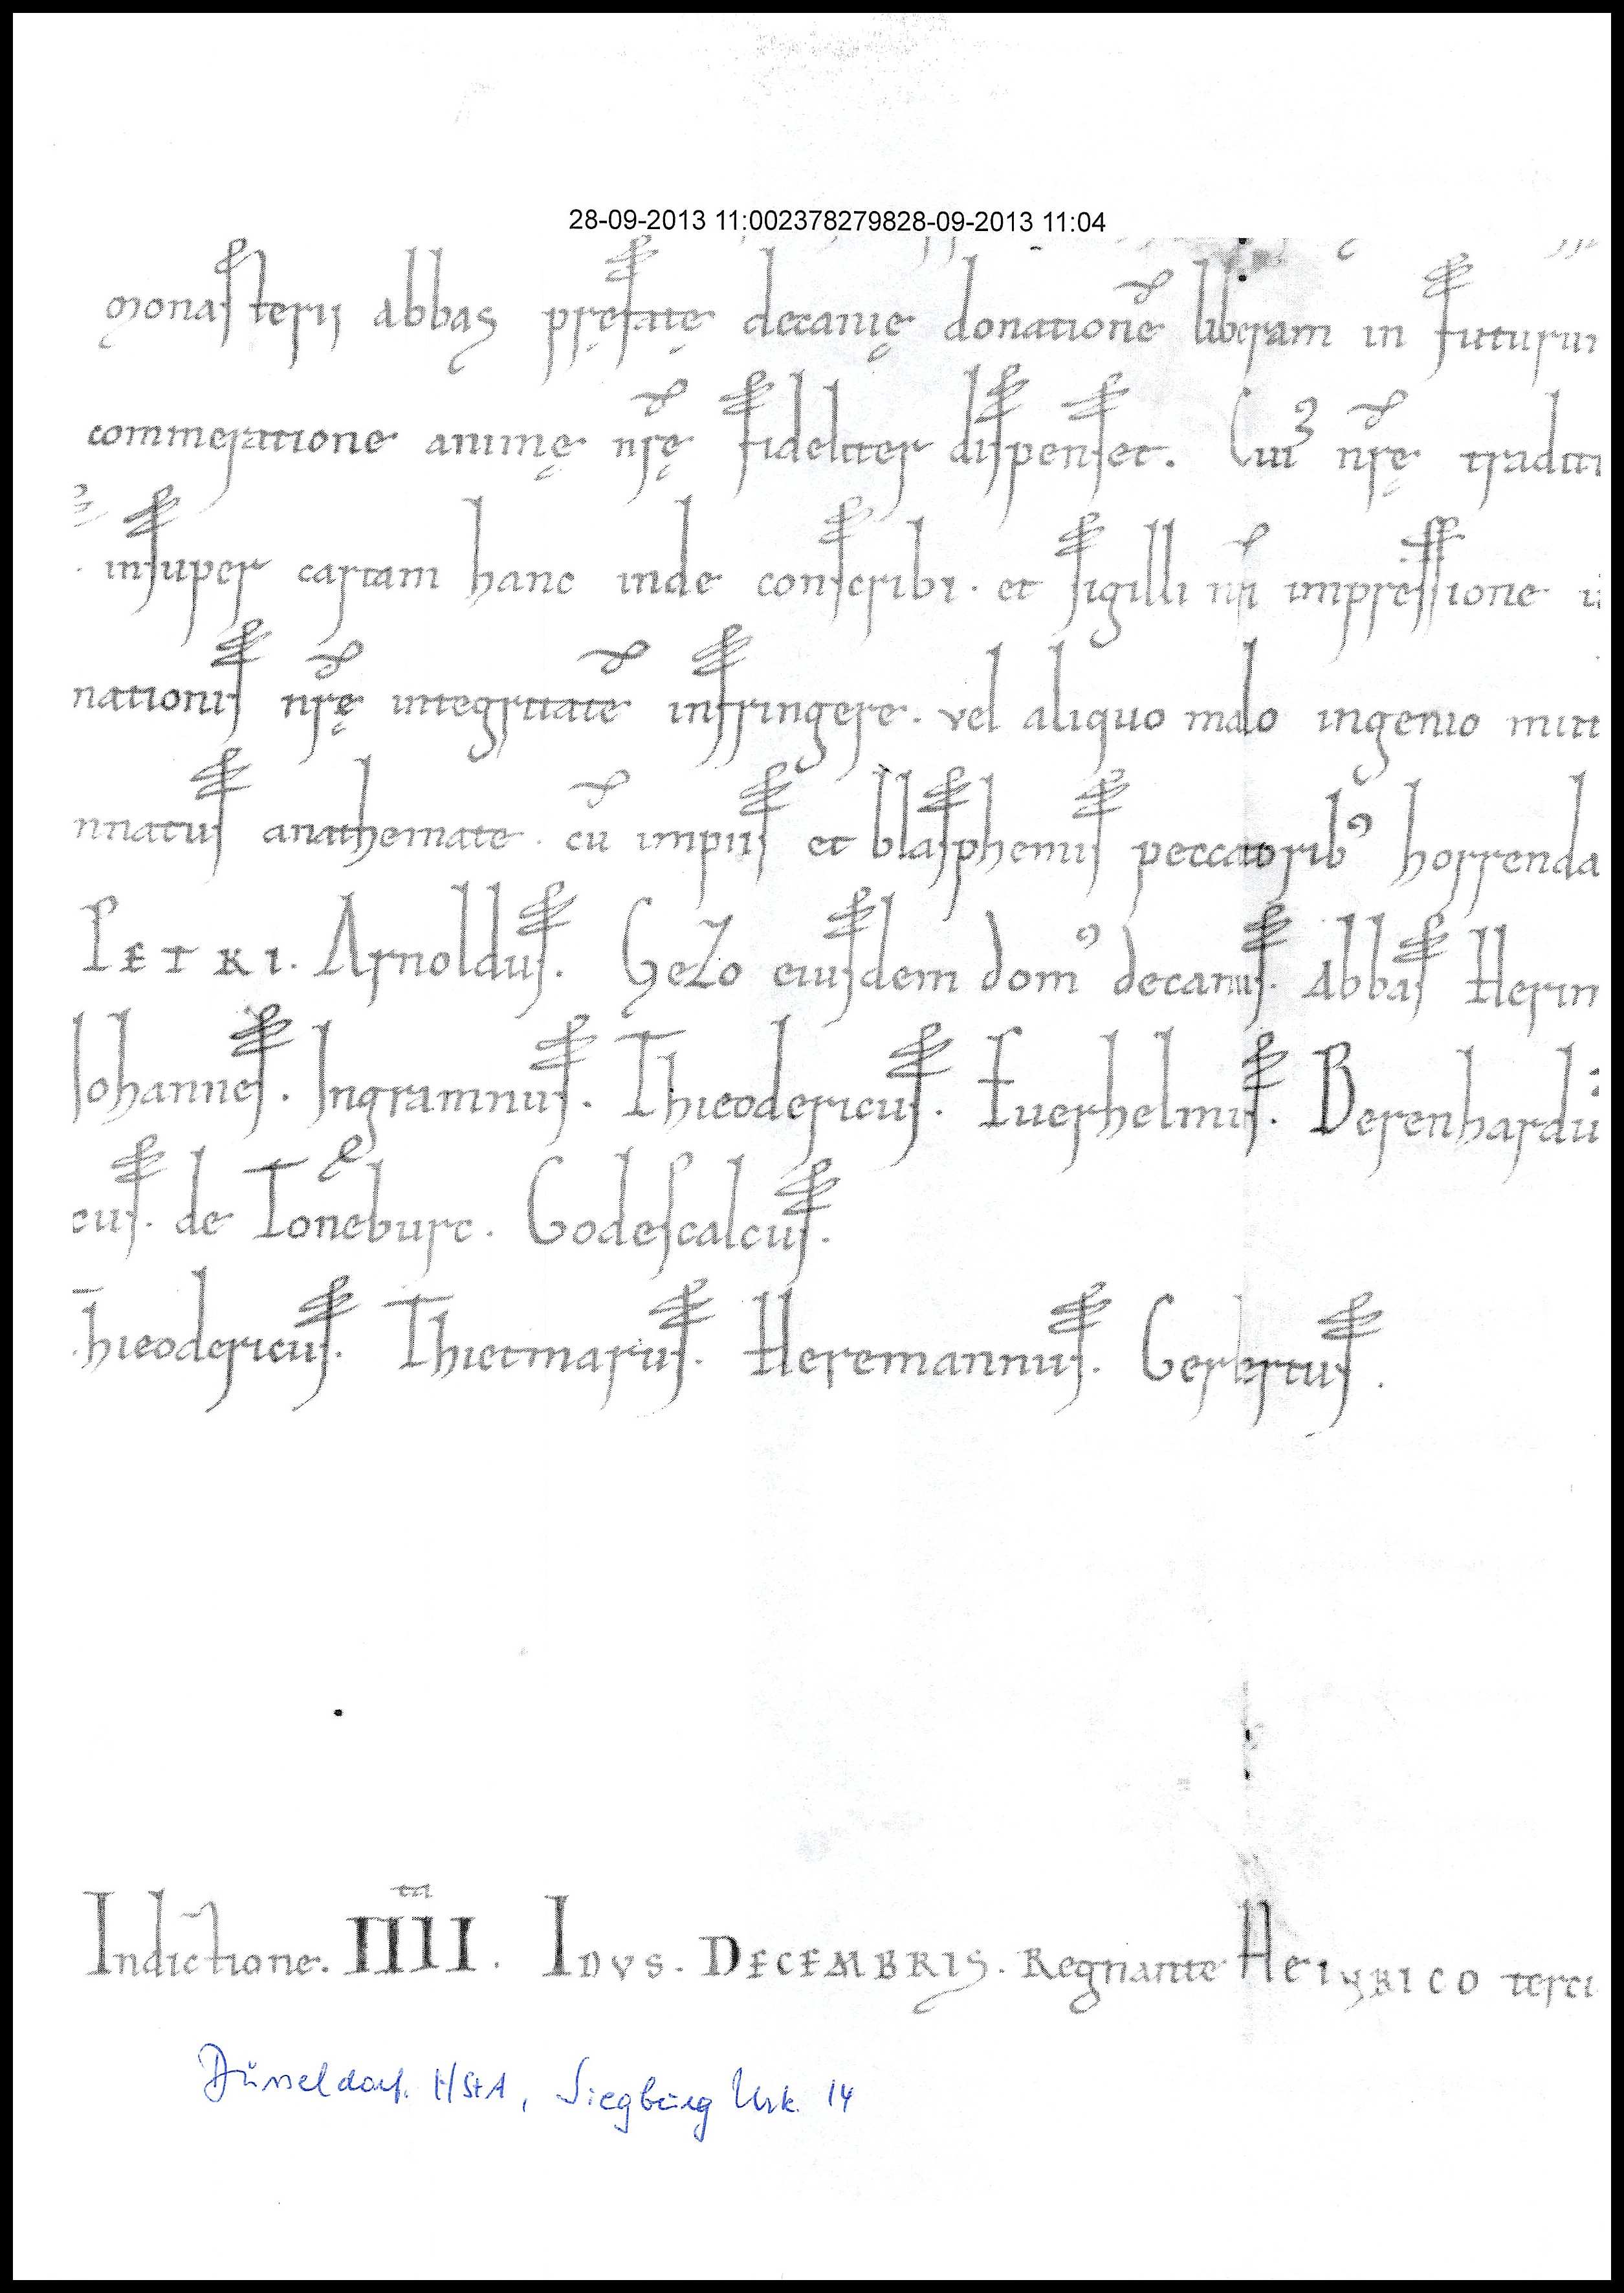 28-09-2013 11:002378279828-09-2013 11:04
monasterii abbas pręfatę decanię donationē liberam in futurum
commeratione animę nr̄ę fideliter dispenset. Cuiꝫ nr̄ę traditi
insuper cartam hanc inde conscribi. et sigilli nr̄i impressione
nationis nr̄ę integritatē infringere. vel aliquo malo ingenio mitt
nnatus anathemate. cū impiis et blasphemis peccatorib᾽ horrenda
PETRI. Arnoldus. Gezo eiusdem dom᾽ decanus. Abbas Herim
Iohannes. Ingramnus. Thieodericus. Euerhelmus. Berenhardu
cus. de Toneburc. Godescalcus.
hieodericus. Thietmarus. Heremannus. Gerbertus.
Indictione. IIII.ta IDVS. DECEMBRIS. Regnante HEINRICO terci
Düsseldorf. HStA, Siegburg Urk. 14